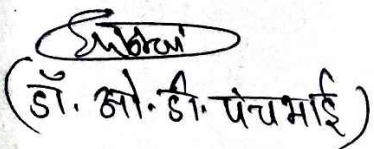 (डॉ. ओ. डी. पंचभाई)